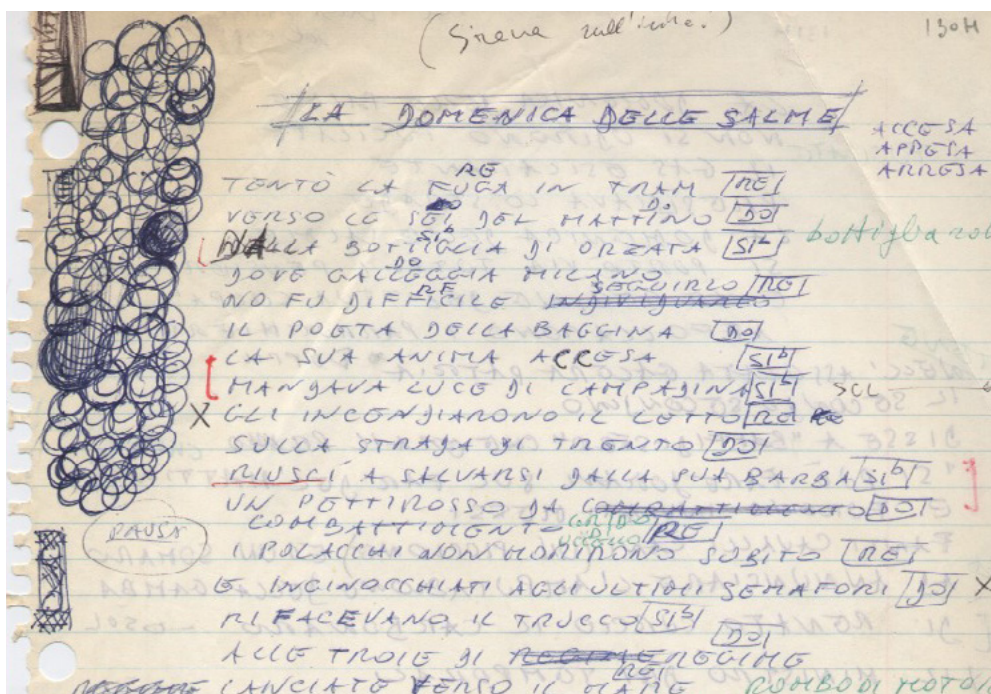 (Sirena sull'
130H
LA DOMENICA DELLE SALME
ACCESA
APPESA
ARRESA
RE
TENTÒ LA FUGA IN TRAM RE
DO
VERSO LE SEI DEL MATTINO DO
SIb
DALLA BOTTIGLIA DI ORZATA SIb bottiglia
DO
DOVE GALLEGGIA MILANO
RE SEGUIRLO RE
NO FU DIFFICILE INDIVIDUARLO
IL POETA DELLA BAGGINA DO
LA SUA ANIMA ACCESA SIb
MANDAVA LUCE DI LAMPADINA SIb SOL
X GLI INCENDIARONO IL LETTO RE
SULLA STRADA DI TRENTO DO
RIUSCÌ A SALVARSI DALLA SUA BARBA SIb
UN PETTIROSSO DA COMBATTIMENTO DO
PAUSA
COMBATTIMENTO GRIDO DI UCCELLO RE
I POLACCHI NON MORIRONO SUBITO RE
E INGINOCCHIATI AGLI ULTIMI SEMAFORI DO X
RIFACEVANO IL TRUCCO SIb
DO
ALLE TROIE DI REGIME REGIME
RE
LANCIATE VERSO IL MARE ROMBO DI MOTORI